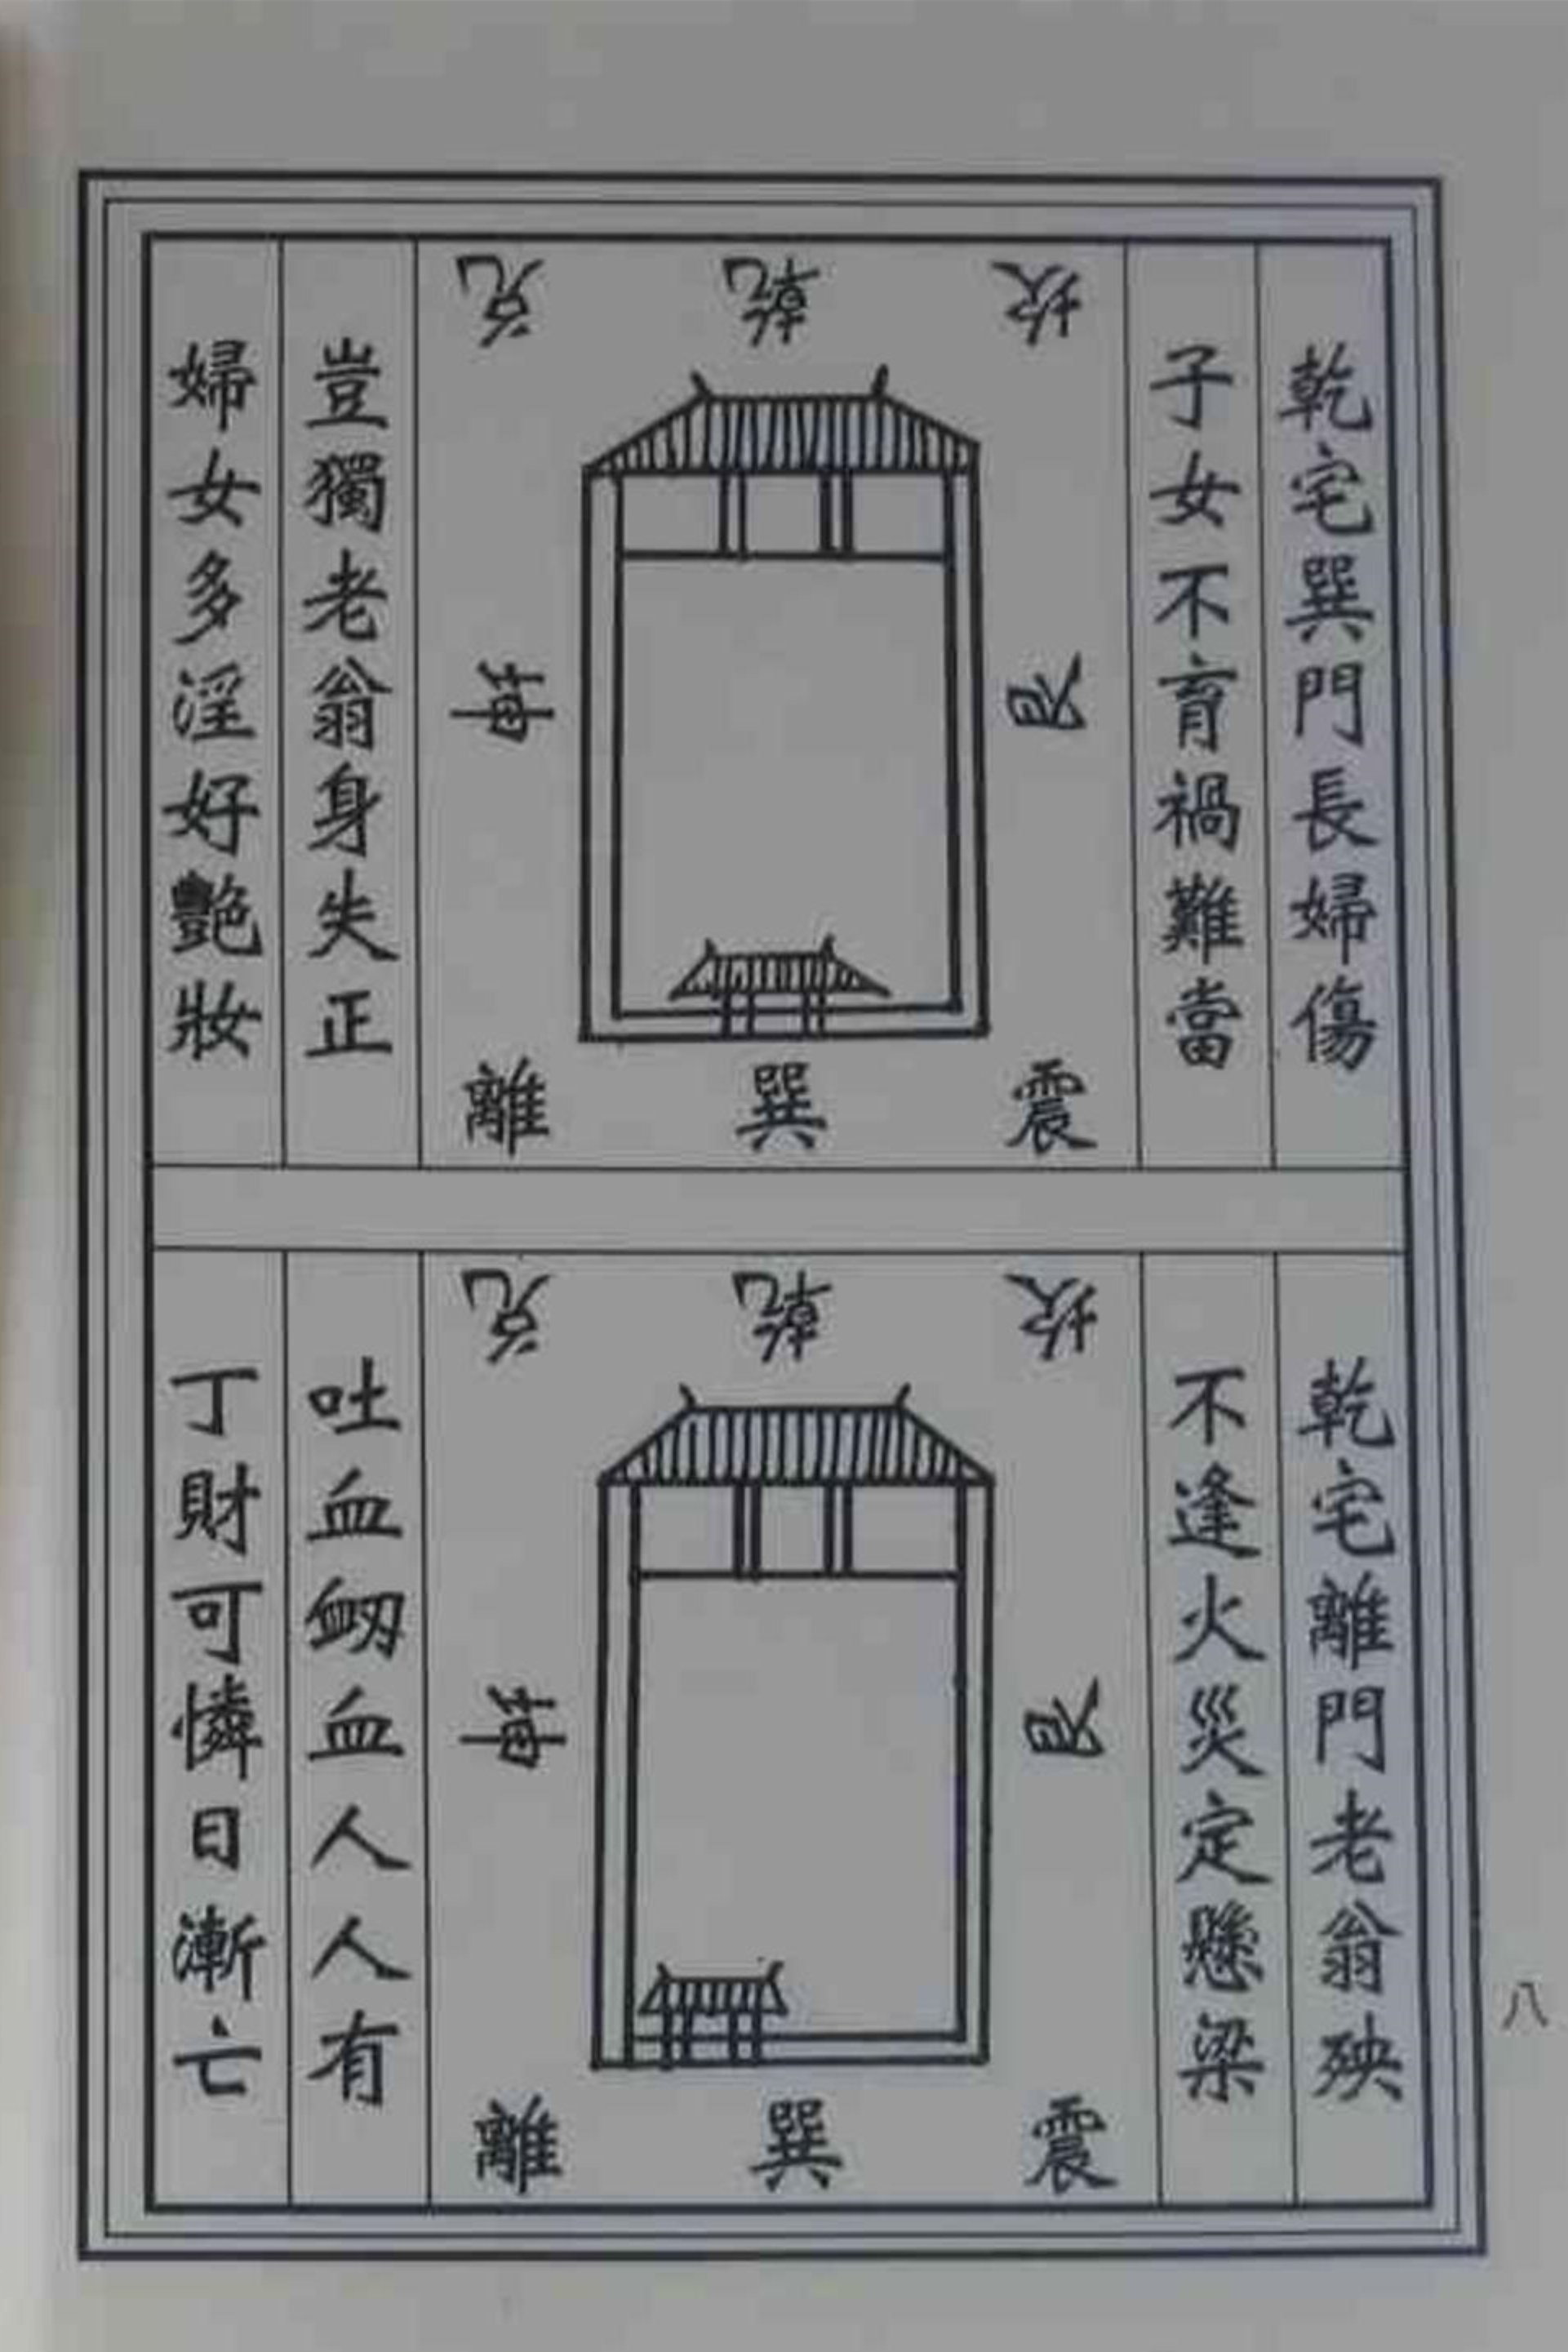 乾宅巽門長婦傷
子女不育禍難當
坎
乾
兌
艮
坤
震
巽
離
豈獨老翁身失正
婦女多淫好艷妝
乾宅離門老翁殃
不逢火災定懸梁
坎
乾
兌
艮
坤
震
巽
離
吐血衂血人人有
丁財可憐日漸亡
八